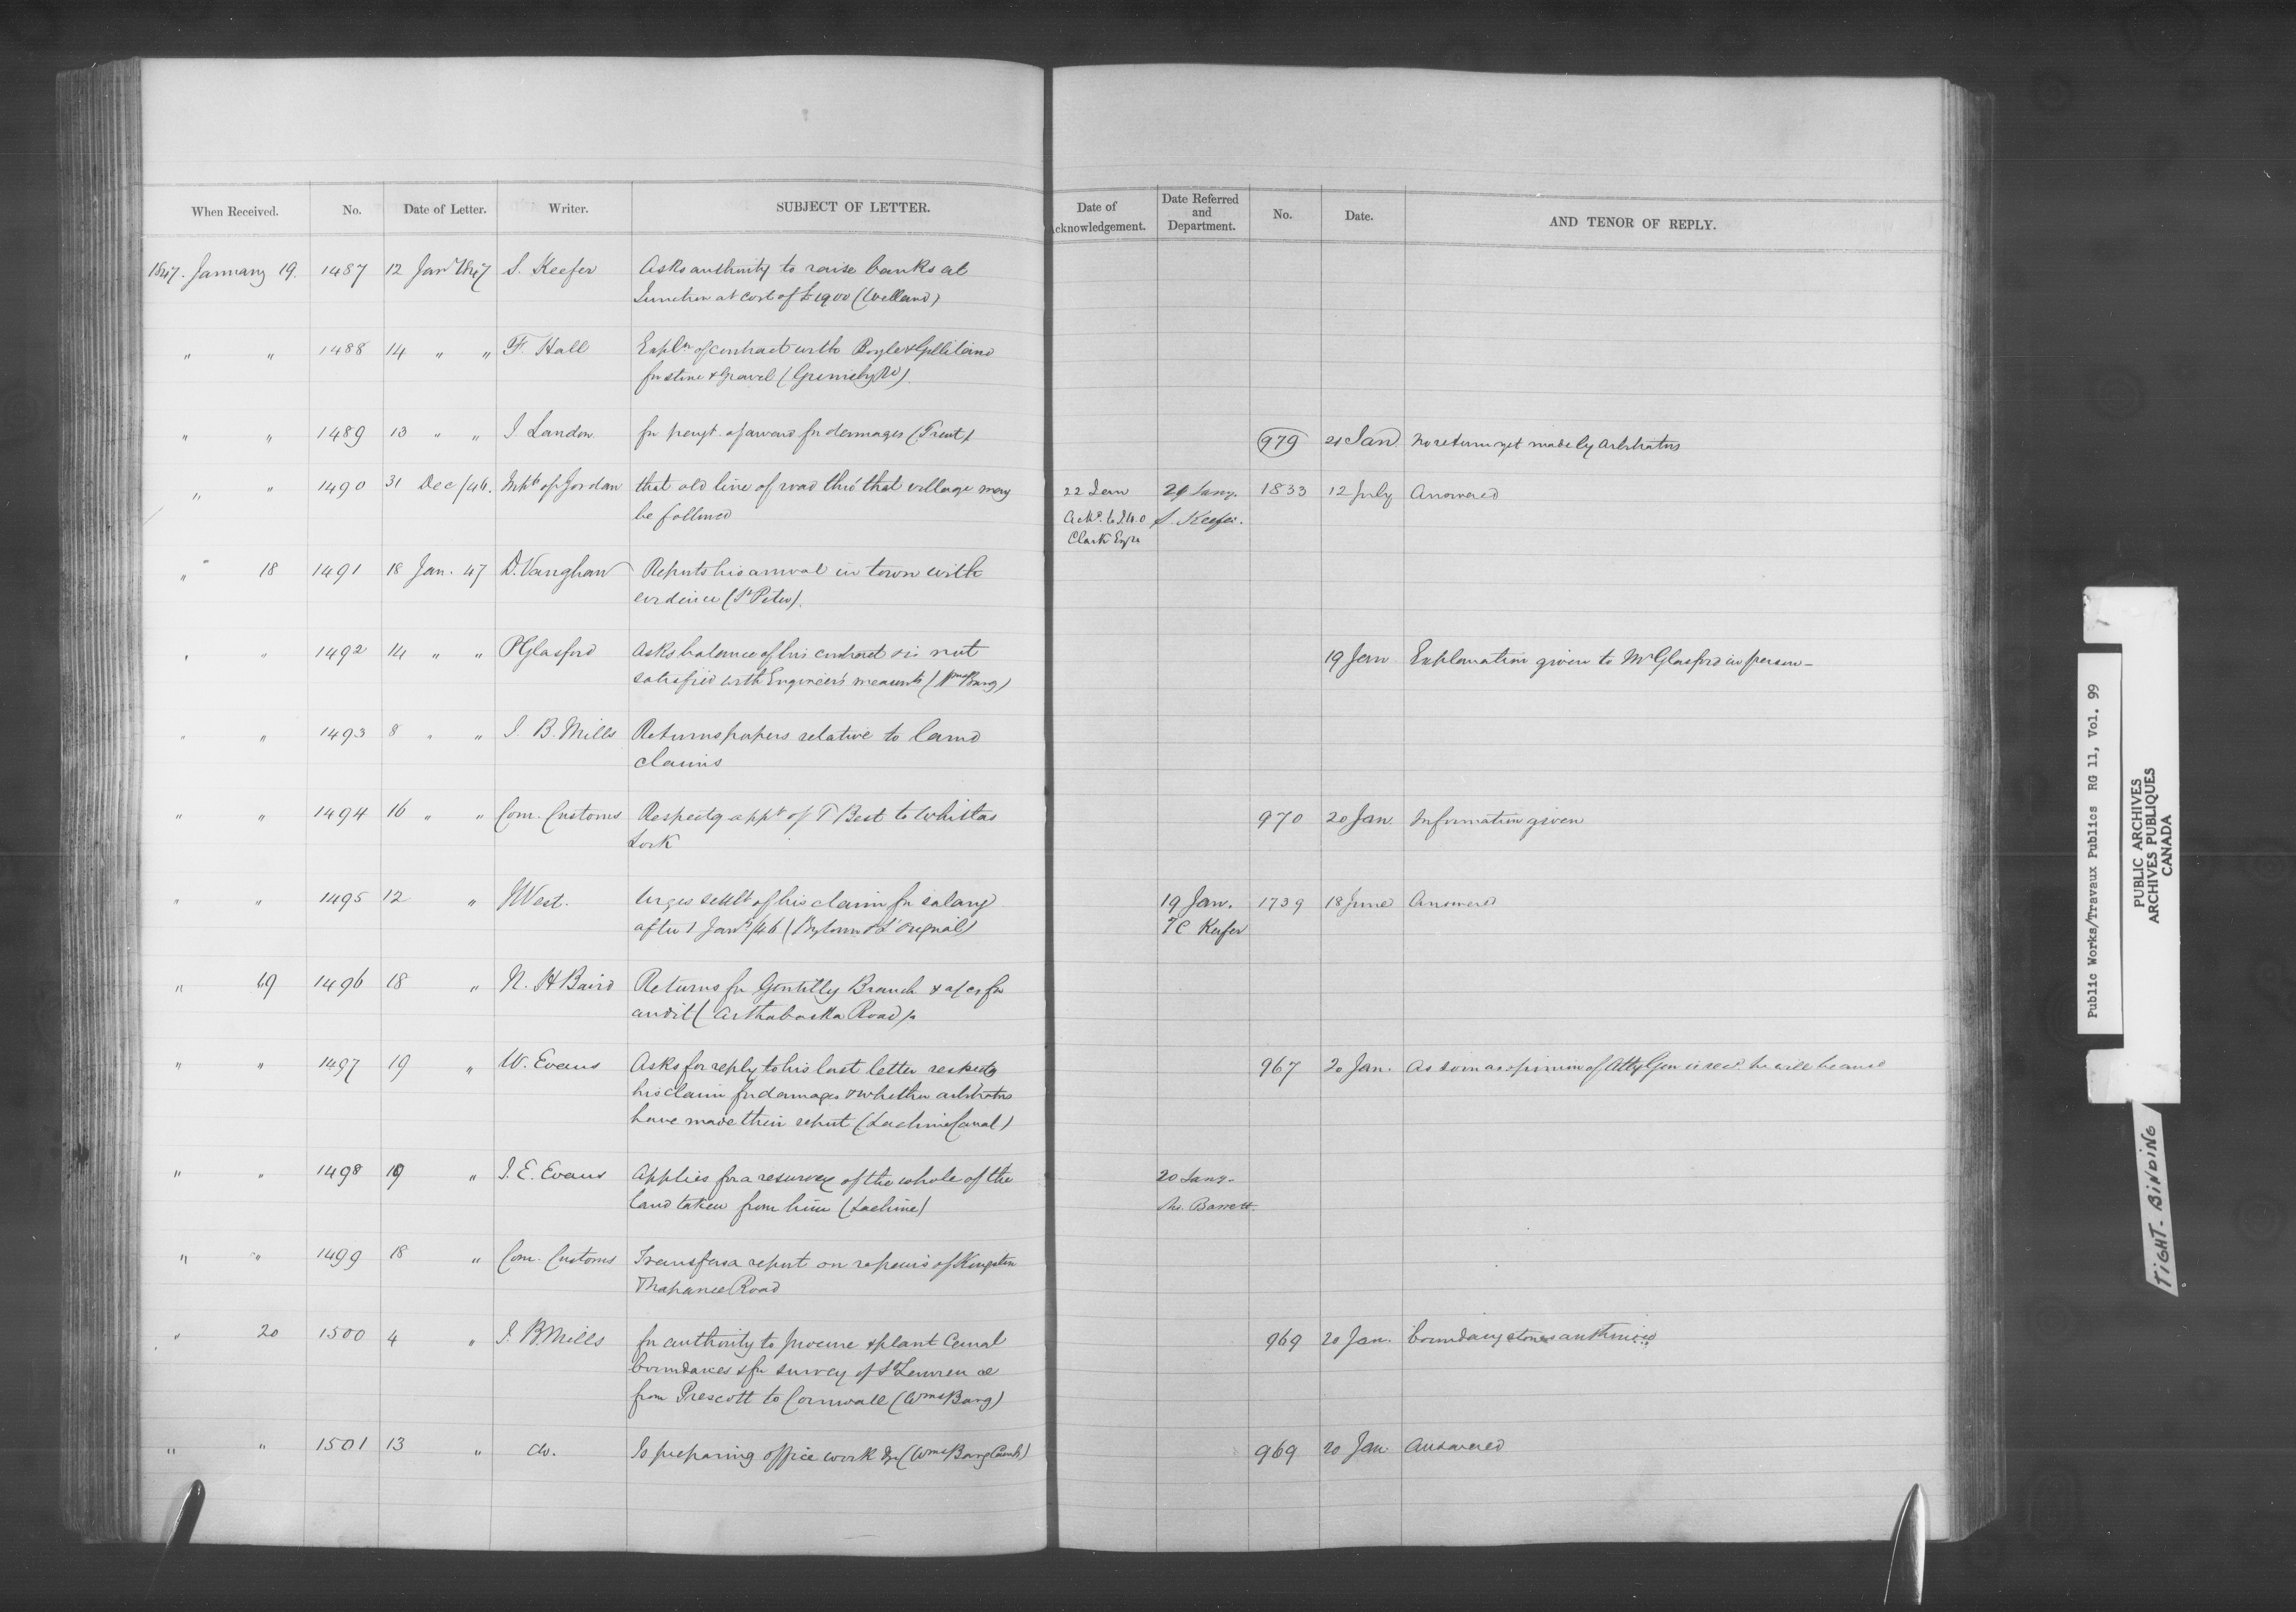 When Received. No. Date of Letter. Writer. SUBJECT OF LETTER. Date of Acknowledgement. Date Referred and Department. No. Date. AND TENOR OF REPLY.
1847. January 19. 1487 12 Jany 1847 S. Keefer Asks authority to raise banks at
Junction at cost of £1900 (Welland)
" " 1488 14 " " F. Hall Expln of contract with Boyle & Gilliland
for stone & Gravel (Grimsby Rd).
" " 1489 13 " " J. Landon for payt. of award for damages (Trent) 979 21 Jan No return yet made by Arbitrators
" " 1490 31 Dec/46. Inhts of Jordan that old line of road thro' that village may 22 Jan 29 Jany. 1833 12 July Answered
be followed S. Keefer.
Clark Esqre
" " 18 1491 18 Jan. 47 D. Vaughan Reports his arrival in town with
evidence (St Peter).
" " 1492 14 " " P Glasford Asks balance of his contract & is not 19 Jan Explanation given to Mr Glasford in person –
satisfied with Engineer's measumts (Wms Barg)
" " 1493 8 " " J. B. Mills Returns papers relative to land
claims
" " 1494 16 " " Com. Customs Respectg appt of T Best to Whitlas 970 20 Jan. Information given
Lock
" " 1495 12 " J West. Urges settlt of his claim for salary 19 Jan. 1739 18 June Answered
after 1 Jany /46 (Bytown & L'orignal) T C Keefer
" 19 1496 18 " N. H Baird Returns for Gentilly Branch & a/cs for
audit (Arthabaska Road)
" " 1497 19 " W. Evans Asks for reply to his last letter respectg 967 20 Jan. As soon as opinion of Atty Gen is recd. he will be ansd
his claim for damages & whether arbitrators
have made their report (Lachine Canal)
" " 1498 19 " J. E. Evans Applies for a resurvey of the whole of the 20 Jany.
land taken from him (Lachine) Barrett
" " 1499 18 " Com. Customs Transfers a report on repairs of Kingston
& Napanee Road
" 20 1500 4 " J. B. Mills for authority to procure & plant Canal 969 20 Jan. boundary stones authorized
boundaries & for survey of St Lawrence
from Prescott to Cornwall (Wms Barg)
" " 1501 13 " do. Is preparing office work &c (Wms Barg Canal) 969 20 Jan Answered
Public Works/Travaux Publics RG 11, Vol. 99
PUBLIC ARCHIVES
ARCHIVES PUBLIQUES
CANADA
TIGHT BINDING